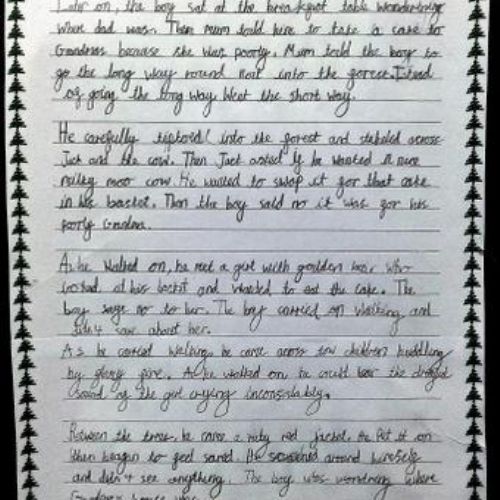 Later on, the boy sat at the breakfast table wondering
where dad was. Then mum told him to take a cake to
Grandmas because she was poorly. Mum told the boy to
go the long way round not into the forest. Istead
of going the long way Went the short way.
He carefully tiptoed into the forest and across
Jack and the cow. Then Jack asked if he wanted a nice
milky moo cow. He wanted to swap it for that cake
in his basket. Then the boy said no it was for his
poorly Grandma.
As he walked on, he met a girl with goulden hair who
looked at his and wanted to eat the cake. The
boy says no to her. The boy carried on walking and
didn't care about her.
As he carried walking, he came across tow children huddling
by fire. As he walked on, he could hear the
sound of the girl crying inconsolably.
Between the trees, he came a red jacket. He Put it on
then began to feel . He around himself
and didn't see anything. The boy was wondering where
Grandmas house was.